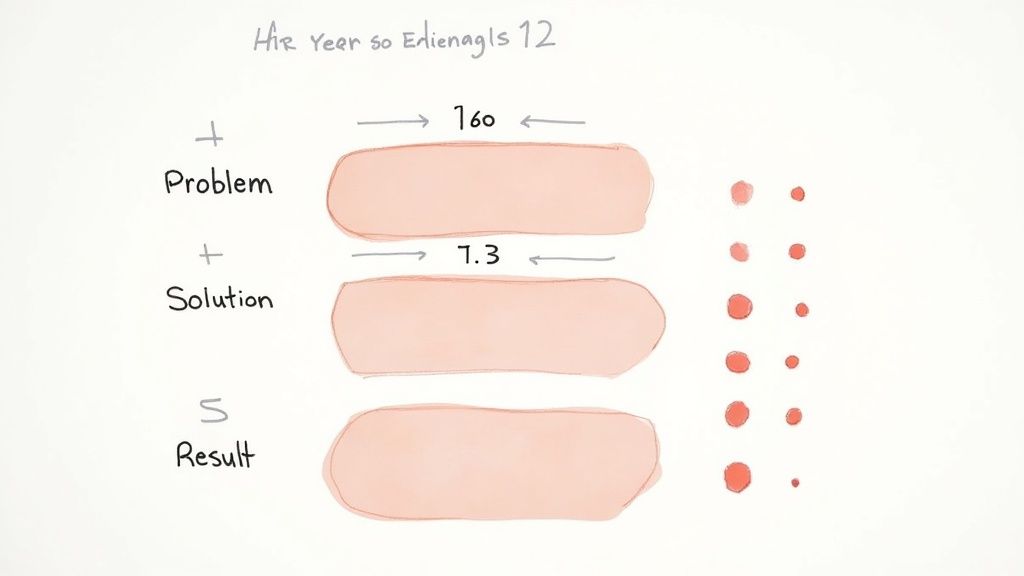 Hir Year so Edienagls 12
160
+
Problem
7.3
+
Solution
5
Result